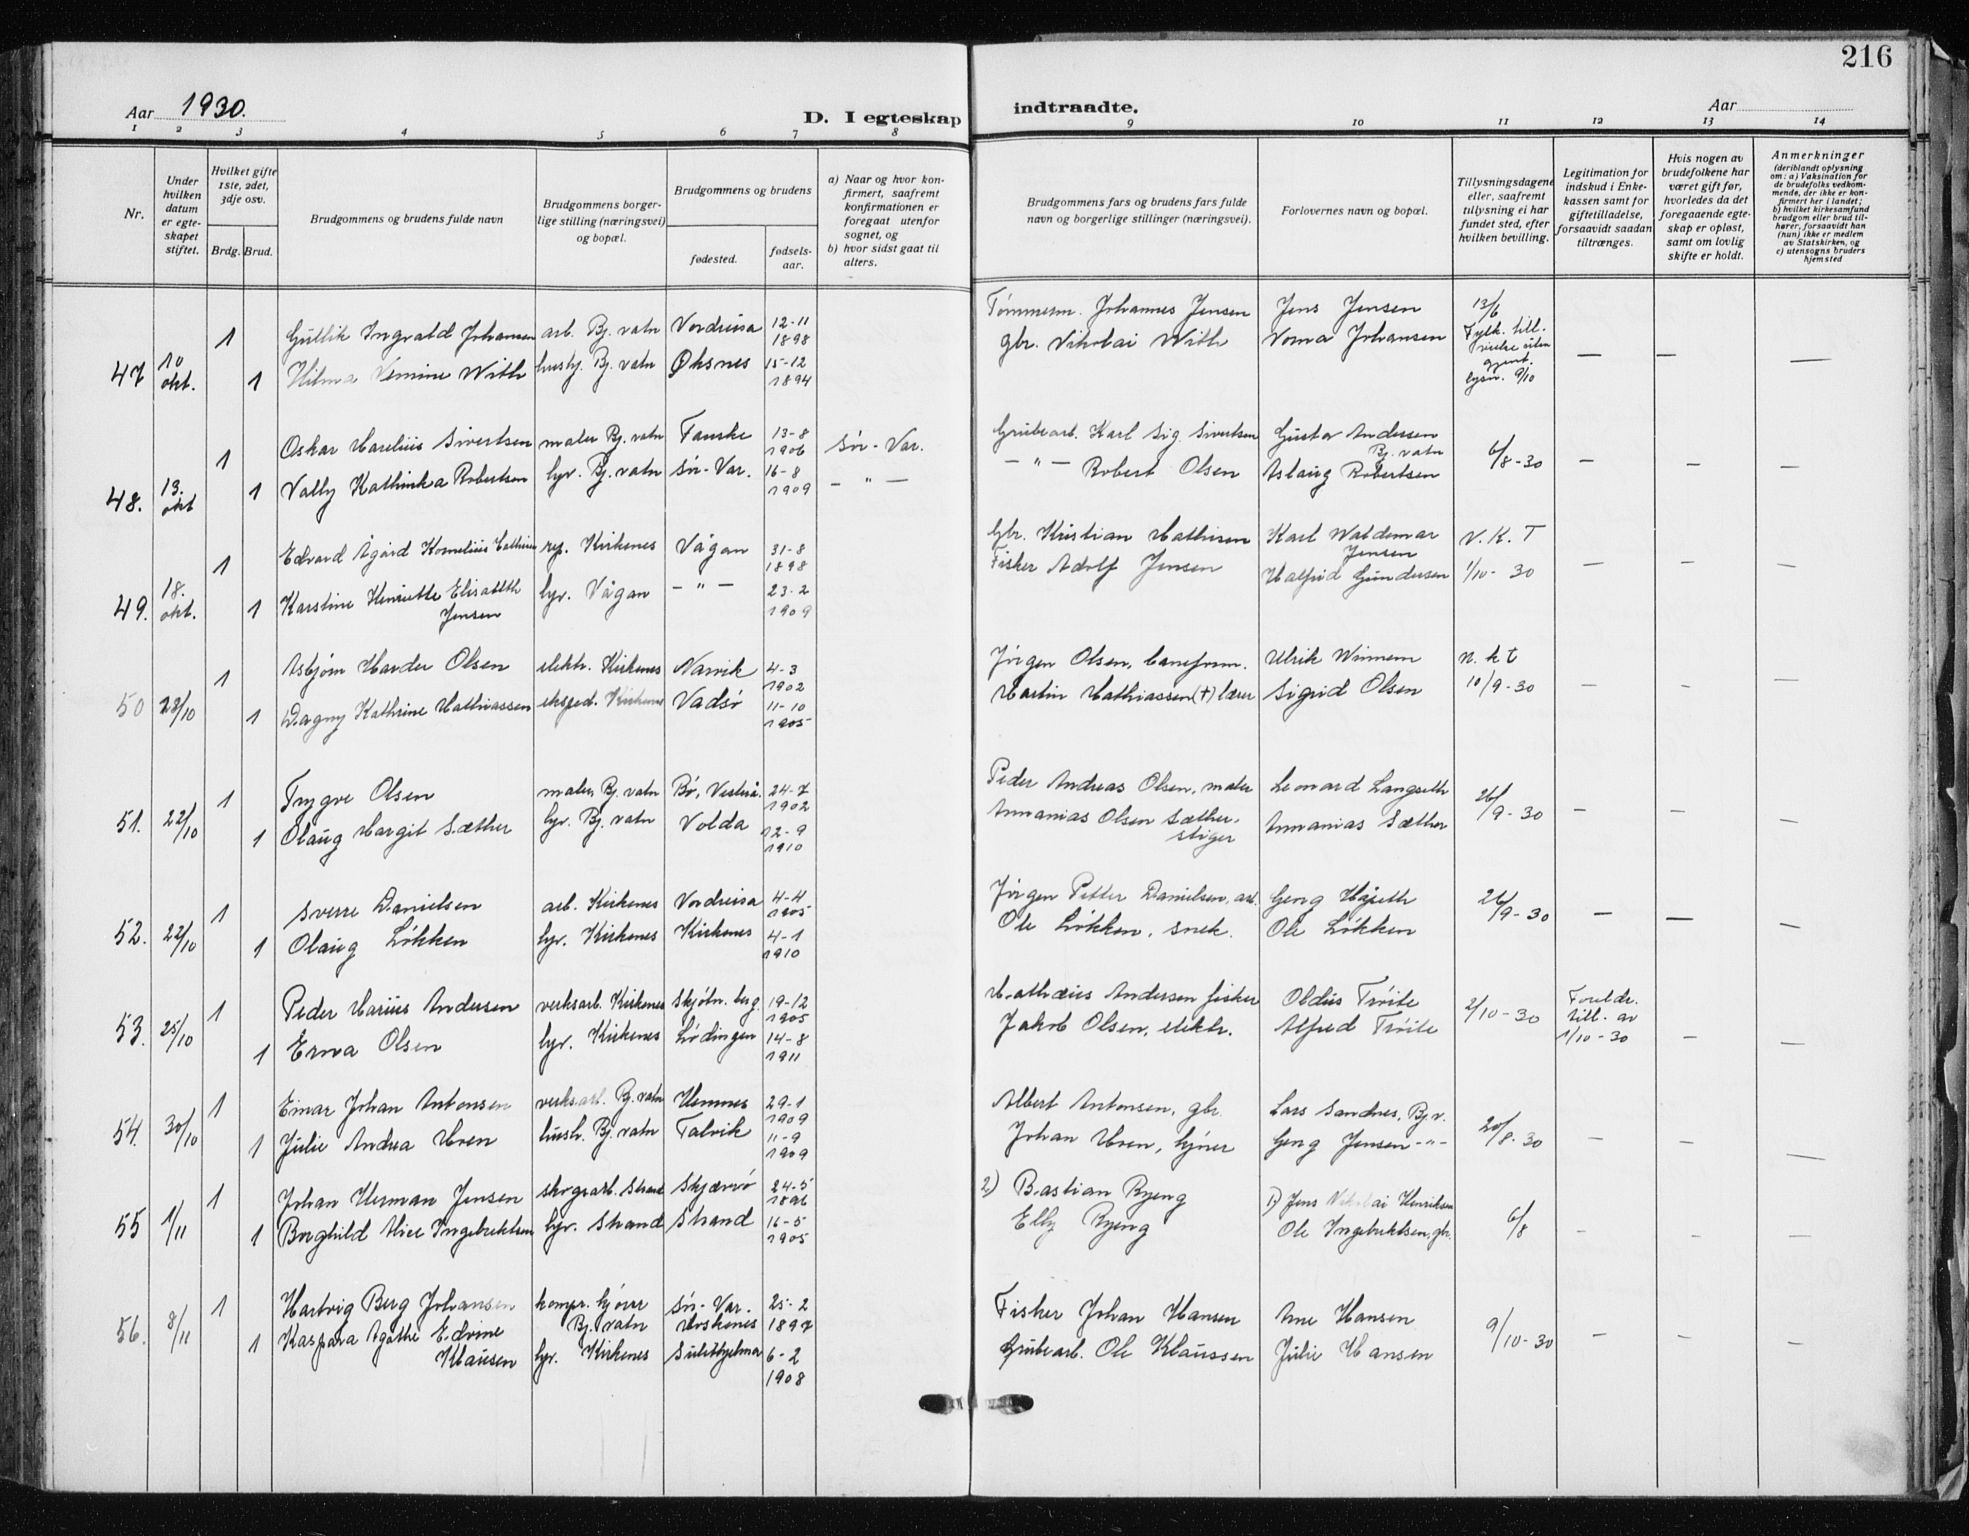 216
Aar 1930.
D. I egteskap indtraadte.
Aar
1 2 3 4 5 6 7 8 9 10 11 12 13 14
Nr.
Under hvilken datum er egteskapet stiftet.
Hvilket gifte 1ste, 2det, 3dje osv.
Brdg. Brud.
Brudgommens og brudens fulde navn
Brudgommens borgerlige stilling (næringsvei) og bopæl.
Brudgommens og brudens
fødested.
fødselsaar.
a) Naar og hvor konfirmert, saafremt konfirmationen er foregaat utenfor sognet, og
b) hvor sidst gaat til alters.
Brudgommens fars og brudens fars fulde navn og borgerlige stillinger (næringsvei).
Forlovernes navn og bopæl.
Tillysningsdagene eller, saafremt tillysning ei har fundet sted, efter hvilken bevilling.
Legitimation for indskud i Enkekassen samt for giftetilladelse, forsaavidt saadan tiltrænges.
Hvis nogen av brudefolkene har været gift før, hvorledes da det foregaaende egteskap er opløst, samt om lovlig skifte er holdt.
Anmerkninger (deriblandt oplysning om: a) Vaksination for de brudefolks vedkommende, der ikke er konfirmert her i landet; b) hvilket kirkesamfund brudgom eller brud tilhører, forsaavidt han (hun) ikke er medlem av Statskirken, og c) utensogns bruders hjemsted
1 Gullik Ingvald Johansen arb. Bj. vatn Nordreisa 12-11 1898 Tømmerm. Johannes Jensen Jens Jensen 13/6
47 10 okt. 1 Hilma Nemine With hush. Bj. vatn Øksnes 15-12 1894 gbr. Nikolai With Norma Johansen Fylk. till. lysn. 9/10 — — —
1 Oskar Marelius Sivertsen maler Bj. vatn Fauske 13-8 1906 Sör-Var. Grubearb. Karl Sig. Sivertsen Gustav Andersen Bj. vatn 6/8-30 — — —
48. 13. okt 1 Vally Kathinka Robertsen hjv. Bj. vatn Sör-Var. 16-8 1909 — " — — " — Robert Olsen Aslaug Robertsen
1 Edvard Ågård Kornelius Mathisen rep. Kirkenes Vågan 31-8 1898 Gbr. Kristian Mathisen Karl Waldemar Jensen N. K. T
49. 18. okt. 1 Karstine Henriette Elisabeth Jensen hjv. Vågan — " — 23-2 1909 Fisker Adolf Jensen Halfrid Gundersen 1/10-30 — — —
1 Asbjörn Harder Olsen elektr. Kirkenes Narvik 4-3 1902 Jörgen Olsen, baneform. Ulrik Winnem n. k t
50 28/10 1 Dagny Kathrine Mathiassen eksped. Kirkenes Vadsö 11-10 1905 Martin Mathiassen (+) lærer Sigrid Olsen 10/9-30 — — —
1 Trygve Olsen maler Bj. vatn Bö, Vesterå. 24-7 1902 Peder Andreas Olsen, maler Leonard Langseth 26/9-30 — — —
51. 22/10 1 Olaug Margit Sæther hjv. Bj. vatn Volda 12-9 1910 Annanias Olsen Sæther. stiger Annanias Sæther
1 Sverre Danielsen arb. Kirkenes Nordreisa 4-4 1905 Jörgen Petter Danielsen, arb. Georg Höjseth 26/9-30 — — —
52. 22/10 1 Olaug Lökken hjv. Kirkenes Kirkenes 4-1 1910 Ole Lökken, snek. Ole Lökken
1 Peder Marius Andersen verksarb. Kirkenes Skjötn. berg. 19-12 1905 Mathæus Andersen fisker Oldus Tröite 2/10-30 Foreldr. till. av 1/10-30
53. 25/10 1 Erna Olsen hjv. Kirkenes Lødingen 14-8 1911 Jakob Olsen, elektr. Alfred Tröite — —
1 Einar Johan Antonsen verksarb. Bj. vatn Hemnes 29-1 1909 Albert Antonsen, gbr. Lars Sandnes, Bj.v. 20/8-30 — — —
54. 30/10 1 Julie Andrea Moen hush. Bj. vatn Talvik 11-9 1909 Johan Moen, kjörer Georg Jensen -"-
1 Johan Herman Jensen skogsarb. Strand Skjærvö 24-5 1896 2) Bastian Ryeng 1) Jens Nikolai Henriksen 6/8 — — —
55 1/11 1 Borghild Alice Ingebrektsen hjv. Strand Strand 16-5 1905 Elly Ryeng Ole Ingebrektsen, gbr.
1 Hartvig Berg Johansen kompr. kjörer Bj. vatn Sör-Var. 25-2 1897 Fisker Johan Hansen Ane Hansen 9/10-30 — — —
56. 8/11 1 Kaspara Agathe Edvine Klausen hjv. Kirkenes Sulithjelma 6-2 1908 Grubearb. Ole Klaussen Julie Hansen